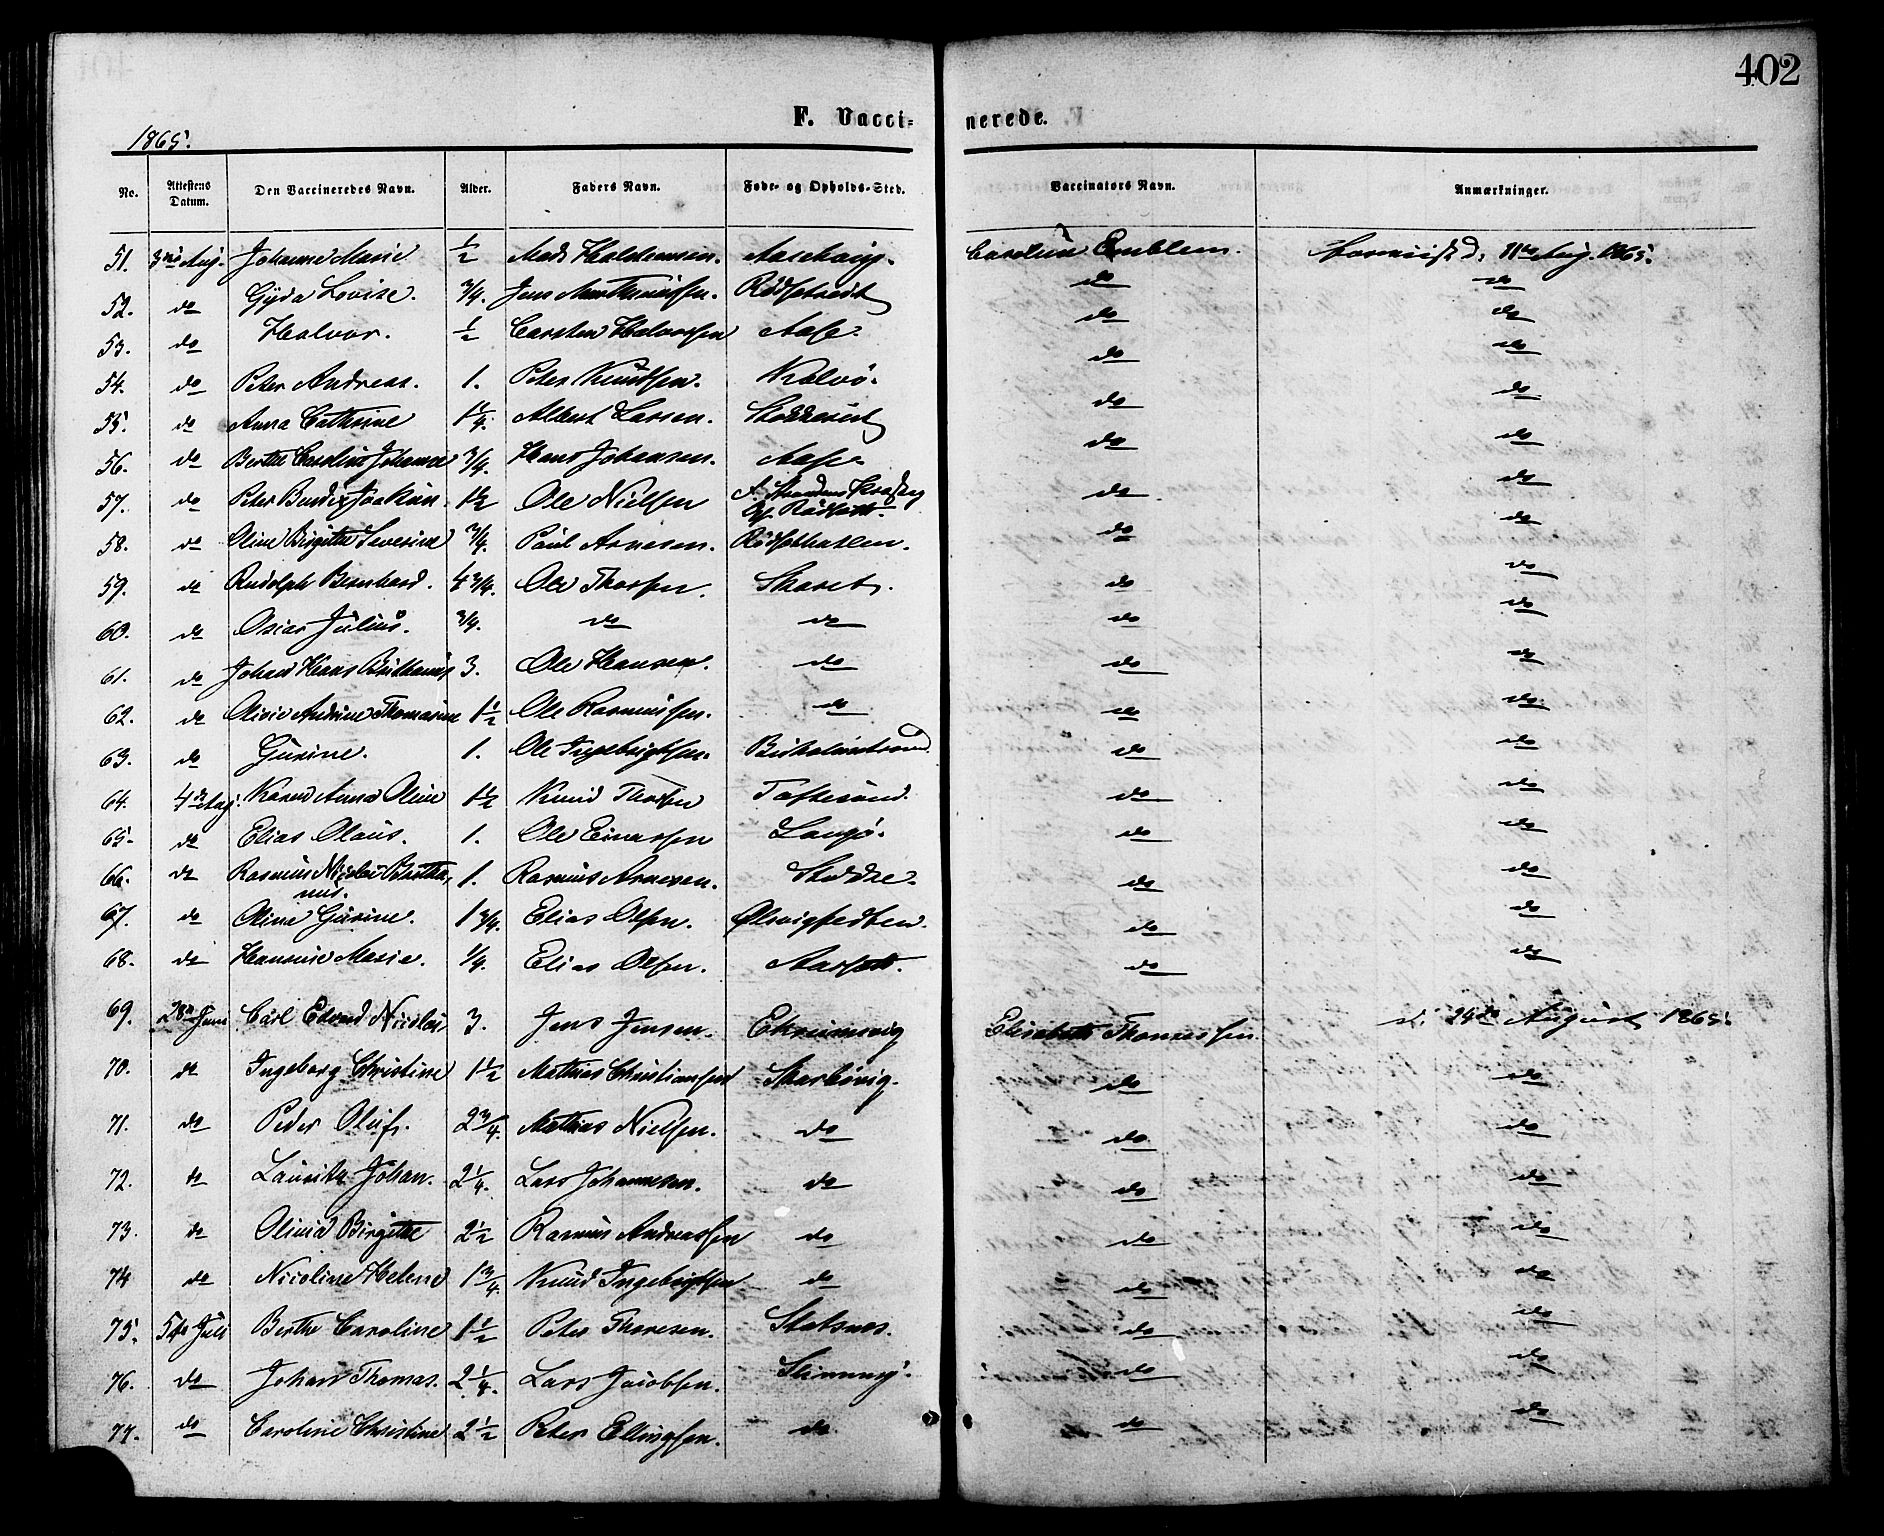 402
F. Vacci- nerede.
1865.
No. Attestens Datum. Den Vaccineredes Navn. Alder. Faders Navn. Føde- og Opholds-Sted. Vaccinators Navn. Anmærkninger.
51. 3die Aug. Johanne Marie 1/2 Mads Aaseboug. Emblem. 11te Aug. 1865.
52. do Gyda Lovise. 3/4. Jens do do
53. do Halvor. 1/2 Carsten Halvorsen Aase. do do
54. do Peter Andreas. 1. Peter Knudsen. Kalvø. do do
55. do Anna Cathrine 1 1/4. Albert Larsen. do do
56. do Berthe Caroline Johanne 3/4. Hans Johansen. Aase. do do
57. do Peter Joakim. 1 1/2 Ole Nielsen do do
58. do Oline Birgitte Severine 3/4. Paul Arnesen. do do
59. do Rudolph Bernhard. 4 3/4. Ole Thorsen. Skaret. do do
60. do Oscar Julius. 3/4. do do do do
61. do Johan Klaus 3. Ole Hansen. do do do
62. do Andrine Thomasine 1 1/2 Ole Rasmussen. do do do
63. do Gurine. 1. Ole Ingebrigtsen. do do
64. 4de Aug. Karen Anna Oline 1 1/2 Knud Toftesund. do do
65. do Elias Olaus. 1. Ole Einarsen Langø. do do
66. do Rasmus Nicolai Bertha- 1. Rasmus Arnesen. Stokke. do do
nus.
67. do Oline Gurine. 1 3/4. Elias Olsen. do do
68. do Hansine Marie. 1/4. Elias Olsen. Aarseth. do do
69. 28de Juni Carl Edvard Nicolai 3. Jens Jensen. Elisabeth Thomassen. d. 24de August 1865.
70. do Ingeborg Christine 1 1/2 Mathias Christiansen Skarbøvig. do do
71. do Peder Oluf. 2 3/4. Mathias Nielsen. do do do
72. do Lauritz Johan. 2 1/4. Lars Johannesen. do do do
73. do Olivia Birgitte 2 1/2 Rasmus Andreassen do do do
74 do Nicoline Helene 1 3/4. Knud Ingebrigtsen do do do
75. 5te Juli Berthe Caroline 1 1/2 Peter Thoresen. Slotsnes. do do
76. do Johan Thomas. 2 1/4. Lars Jacobsen. do do
77. do Caroline Christine 2 1/2 Peter Ellingsen. do do do